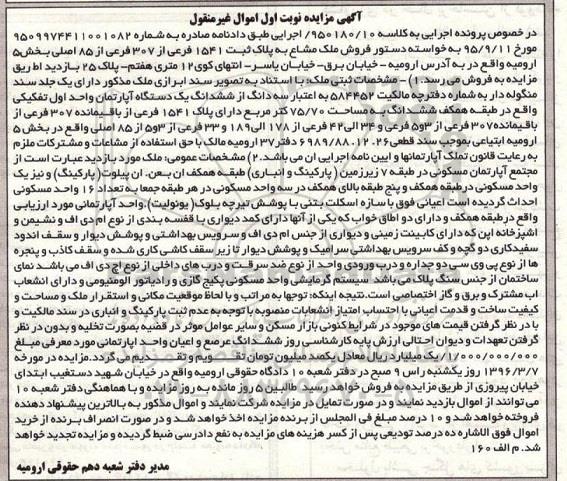 آگهی مزایده نوبت اول اموال غیرمنقول
در خصوص پرونده اجرایی به کلاسه ۹۵۰۱۸۰/۱۰ اجرایی طبق دادنامه صادره به شماره ۹۵۰۹۹۷۴۴۱۱۰۰۱۰۸۲
مورخ ۹۵/۹/۱۱ به خواسته دستور فروش ملک مشاع به پلاک ثبت ۱۵۴۱ فرعی از ۳۰۷ فرعی از ۸۵ اصلی بخش۵
ارومیه واقع در به آدرس ارومیه - خیابان برق-خیابان یاسر- انتهای کوی۱۲ متری هفتم- پلاک ۲۵ بازدید اط ریق
مزایده به فروش می رسد.۱) - مشخصات ثبتی ملک: با استناد به تصویر سند ابرازی ملک مذکور دارای یک جلد سند
منگوله دار به شماره دفترچه مالکیت ۵۸۴۴۵۲ به اعتبار سه دانگ از ششدانگ یک دستگاه آپارتمان واحد اول تفکیکی
واقع در طبقه همکف ششدانگ به مساحت ۷۵/۷۰ متر مربع دارای پلاک ۱۵۴۱ فرعی از باقیمانده ۳۰۷ فرعی از
باقیمانده۳۰۷ فرعی از ۳و۵ فرعی و ۳۴ الی۴۲ فرعی از ۱۷۸ الی۱۸۹ و ۳۳ فرعی از ۳و۵ از ۸۵ اصلی واقع در بخش ۵
ارومیه ابتیاعی بموجب سند قطعی۶۹۸۹/۸۸.۱۲.۲۶ دفتر۳۷ ارومیه مالک با حق استفاده از مشاعات و مشترکات ملزم
به رعایت قانون تملک آپارتمانها و ایین نامه اجرایی ان می باشد.۲) مشخصات عمومی: ملک مورد بازدید عبارت است از
مجتمع آپارتمان مسکونی در طبقه ۷ زیرزمین ( پارکینگ و انباری) طبقه همکف ان بعن. ان پیلوت( پارکینگ) و نیز یک
واحد مسکونی درطبقه همکف و پنج طبقه بالای همکف در سه واحد مسکونی در هر طبقه جمعا به تعداد ۱۶ واحد مسکونی
احداث گردیده است اعیانی فوق با سازه اسکلت بتنی با پوشش تیرچه بلوک ( یونولیت).واحد آپارتمانی مورد ارزیابی
واقع درطبقه همکف و دارای دو اطاق خواب که یکی از آنها دارای کمد دیواری با قفسه بندی از نوع ام دی اف و نشیمن و
اشپزخانه اپن که دارای کابینت زمینی و دیواری از جنس ام دی اف و سرویس بهداشتی و پوشش دیوار و سقف اندود
سفیدکاری دو گچه و کف سرویس بهداشتی سرامیک و پوشش دیوار تا زیر سقف کاشی کاری شده و سقف کاذب و پنجره
ها از نوع پی وی سی دو جداره و درب ورودی واحد از نوع ضد سرقت و درب های داخلی از نوع اچ دی اف می باشد نمای
ساختمان از جنس سنگ پلاک می باشد سیستم گرمایشی واحد مسکونی پکیج گازی و رادیاتور الومنیومی و دارای انشعاب
اب مشترک و برق و گاز اختصاصی است.نتیجه اینکه: توجها به مراتب و با لحاظ موقعیت مکانی و استقرار ملک و مساحت و
کیفیت ساخت و قدمت اعیانی با احتساب امتیاز انشعابات منصوبه با توجه به عدم ثبت پارکینگ و انباری در سند مالکیت و
با در نظر گرفتن قیمت های موجود در شرایط کنونی بازار مسکن و سایر عوامل موثر در قضیه بصورت تخلیه و بدون در نظر
گرفتن تعهدات و دیوان احتمالی ارزش پایه کارشناسی روز ششدانگ عرصه و اعیان واحد اپارتمانی مورد معرفی مبلغ
۱/۰۰۰/۰۰۰/۰۰۰ یک میلیارد ریال معادل یکصد میلیون تومان تقویم و تقدیم می گردد.مزایده در مورخه
۱۳۹۶/۳/۷ روز یکشنبه راس ۹ صبح در دفتر شعبه ۱۰ دادگاه حقوقی ارومیه واقع در خیابان شهید دستغیب ابتدای
خیابان پیروزی از طریق مزایده به فروش خواهد رسید طالبین ۵ روز مانده به روز مزایده و با هماهنگی دفتر شعبه ۱۰
می توانند از اموال بازدید نمایند و در صورت تمایل در مزایده شرکت نمایند و اموال مذکور به بالاترین پیشنهاد دهنده
فروخته خواهد شد و ۱۰ درصد مبلغ فی المجلس از برنده مزایده اخذ خواهد شد و در صورت انصراف برنده از خرید
اموال فوق الاشاره ده درصد تودیعی پس از کسر هزینه های مزایده به نفع دادرسی ضبط گردیده و مزایده تجدید خواهد
شد. م الف ۱۶۰
مدیر دفتر شعبه دهم حقوقی ارومیه